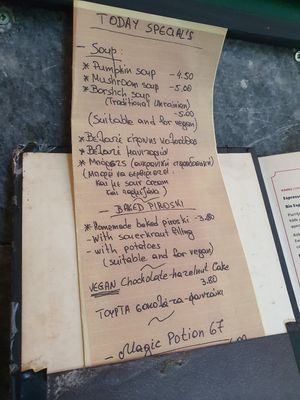 TODAY SPECIAL'S
- Soup:
* Pumpkin soup -4.50
* Mushroom soup -5.00
* Borshch soup
(Traditional Ukrainion)
-5.00
(Suitable and for vegan)
* Βελουτέ
* Βελουτέ μανιταριών
* Μπόρτς
και με sour cream
- BAKED PIROSKI -
* Homemade baked piroski -3.80
- With sauerkraut filling
- with potatoes
(suitable and for vegan)
VEGAN Chockolate-hazelnut Cake
3.80
ΤΟΥΡΤΑ σοκολάτα-φουντούκι
- Magic Potion 67
Espresso